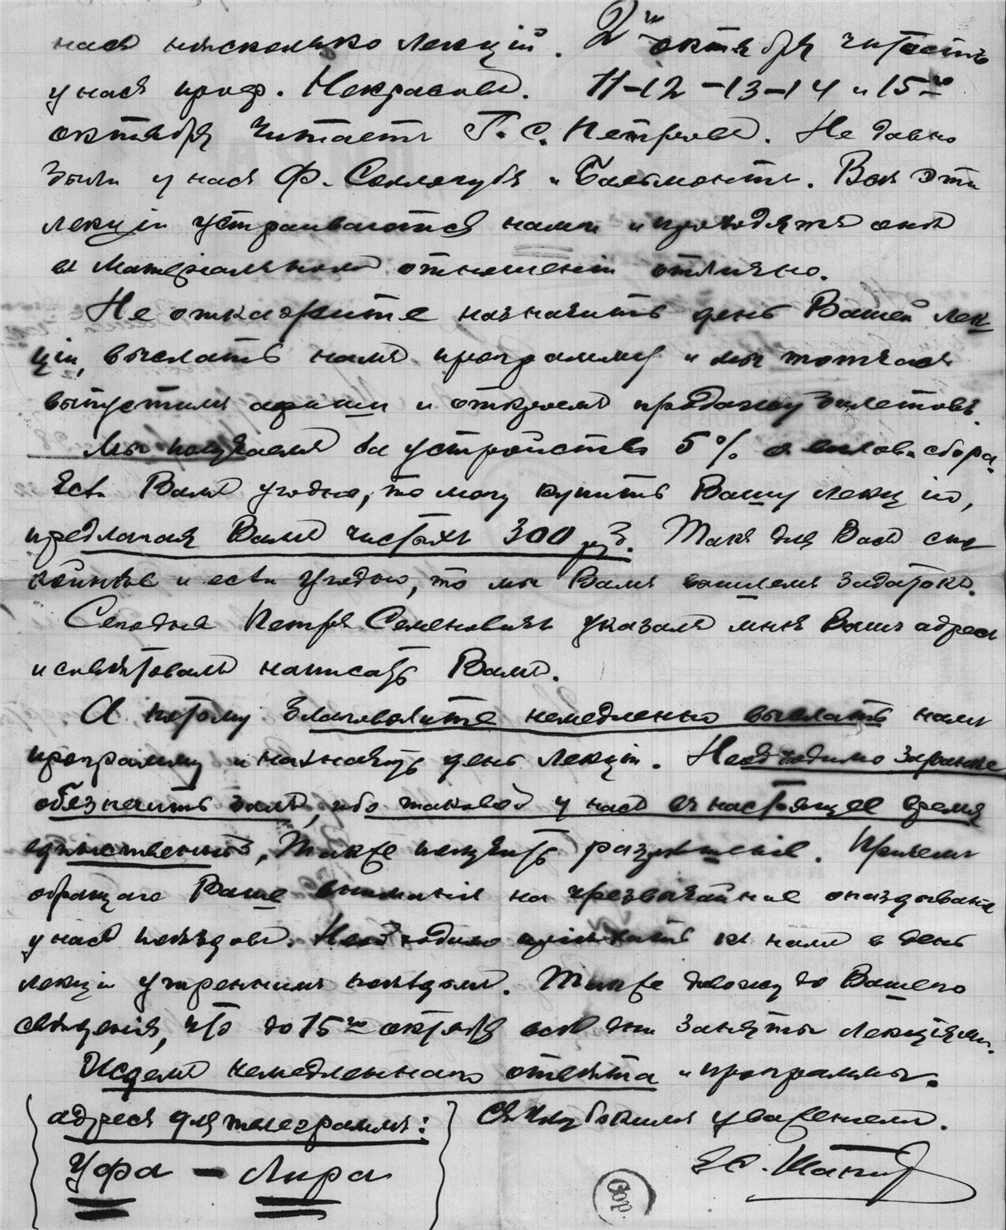 насъ нѣсколько лекцій. 2го октября читаетъ
у насъ проф. Некрасовъ. 11-12-13-14 и 15го
октября читаетъ Г. С. Петровъ. Не давно
были у насъ Ф. Сологубъ и Бальмонтъ. Всѣ эти
лекціи устраиваются нами и проходятъ онѣ
въ матеріальномъ отношеніи отлично.
Не откажите назначить день Вашей лек
ціи, выслать намъ программу и мы тотчасъ
выпустимъ афиши и откроемъ продажу билетовъ.
Мы получаемъ за устройство 5% съ валов. сбора.
Если Вамъ угодно, то могу купить Вашу лекцію,
предлагая Вамъ чистыхъ 300 руб. Такъ для Васъ спо
койнѣе и если угодно, то мы Вамъ вышлемъ задатокъ.
Сегодня Петръ Семеновичъ указалъ мнѣ Вашъ адресъ
и совѣтовалъ написать Вамъ.
А потому благоволите немедленно выслать намъ
программу и назначить день лекціи. Необходимо заранѣе
обезпечить залъ, ибо таковой у насъ въ настоящее время
единственный, также получить разрѣшеніе. Причемъ
обращаю Ваше вниманіе на чрезвычайное опаздываніе
у насъ поѣздовъ. Необходимо пріѣхать къ намъ в день
лекціи утреннимъ поѣздомъ. Также довожу до Вашего
свѣденія, что до 15го октября всѣ дни заняты лекціями.
Ждемъ немедленнаго отвѣта и программы.
адресъ для телеграммъ: Съ глубокимъ уваженіемъ.
Уфа - Лира